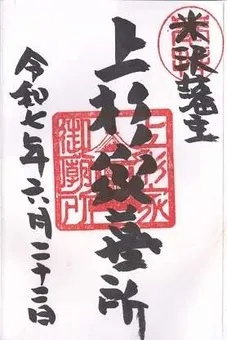 米沢藩主
上杉家墓所
上杉家
御廟所
令和七年六月二十二日